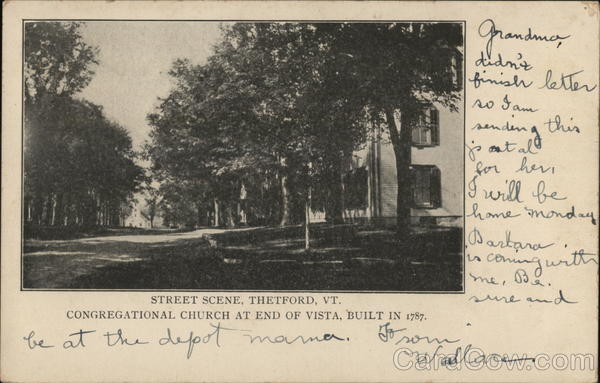 Grandma,
didn't
finish letter
so I am
sending this
postal
for her,
I will be
home Monday
Barbara
is coming with
me, Be.
sure and
STREET SCENE, THETFORD, VT.
CONGREGATIONAL CHURCH AT END OF VISTA, BUILT IN 1787.
be at the depot mama.
Wallace
CardCow.com